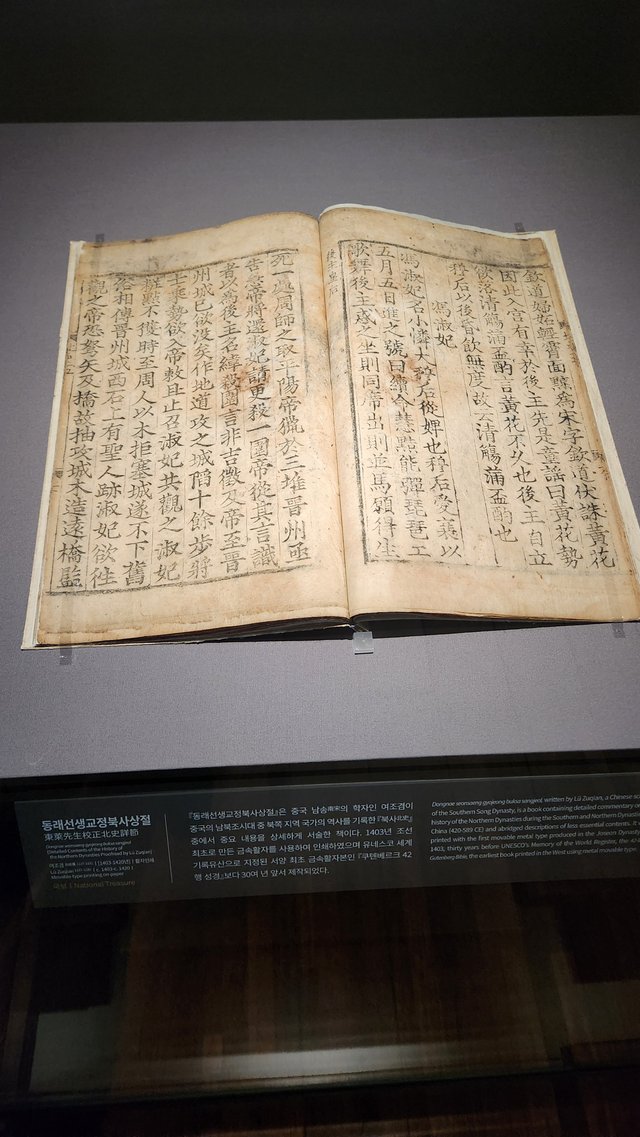 欽道婦妬輕霄面黥為宋字欽道伏誅黃花
因此入宮有幸於後主先是童謠曰黃花勢
欲落清觴滿盃酌言黃花不久也後主自立
穆后以後昏飲無度故云清觴滿盃酌也
馮淑妃
馮淑妃名小憐大穆后從婢也穆后愛衰以
五月五日進之號曰續命慧黠能彈琵琶工
歌舞後主惑之坐則同席出則並馬願得生
死一處周師之取平陽帝獵於三堆晉州亟
告急帝將還淑妃請更殺一圍帝從其言識
者以為後主名緯殺圍言非吉徵及帝至晉
州城已欲沒矣作地道攻之城陷十餘步將
士乘勢欲入帝敕且止召淑妃共觀之淑妃
粧點不獲時至周人以木拒塞城遂不下舊
俗相傳晉州城西石上有聖人跡淑妃欲往
觀之帝恐弩矢及橋故抽攻城木造遠橋監
동래선생교정북사상절
東萊先生校正北史詳節
Dongnae seonsaeng gyojeong buksa sangjeol
(Detailed Contents of the History of
the Northern Dynasties Proofread by Lü Zuqian)
국보 | National Treasure
『동래선생교정북사상절』은 중국 남송南宋의 학자인 여조겸이
중국의 남북조시대 중 북쪽 지역 국가의 역사를 기록한 『북사北史』
중에서 중요 내용을 상세하게 서술한 책이다. 1403년 조선
최초로 만든 금속활자를 사용하여 인쇄하였으며 유네스코 세계
기록유산으로 지정된 서양 최초 금속활자본인 『쿠텐베르크 42
행 성경』보다 30여 년 앞서 제작되었다.
Dongnae seonsaeng gyojeong buksa sangjeol, written by Lü Zuqian, a Chinese
of the Southern Song Dynasty, is a book containing detailed commentary
history of the Northern Dynasties during the Southern and Northern
China (420-589 CE) and abridged descriptions of less essential contents. It
printed with the first movable metal type produced in the Joseon
1403, thirty years before UNESCO's Memory of the World Register, the
Gutenberg Bible, the earliest book printed in the West using metal movable type.